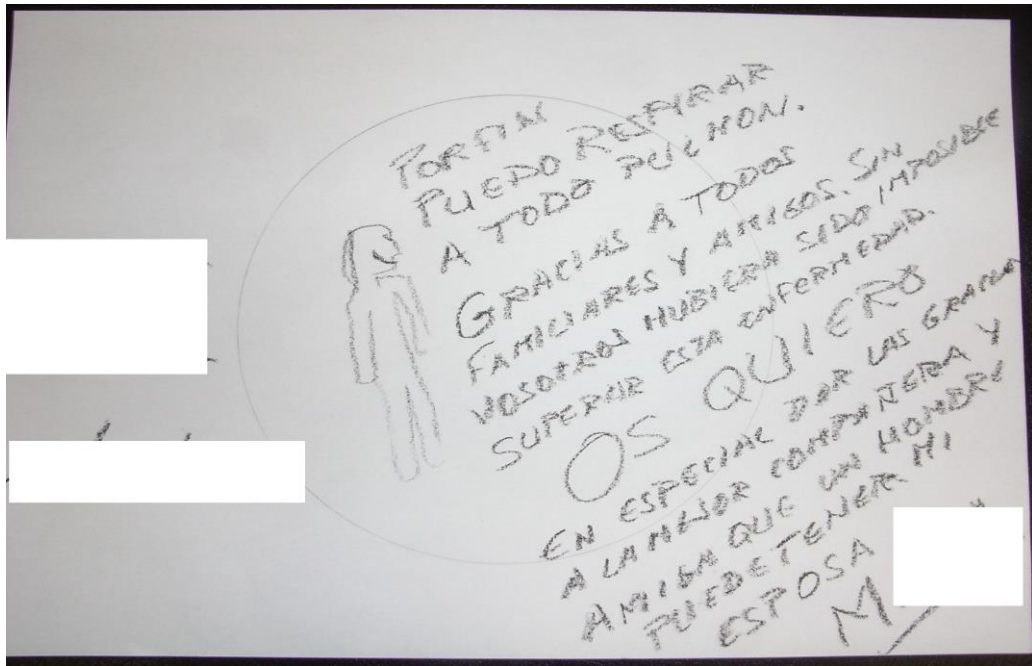 PORFIN
PUEDO RESPIRAR
A TODO PULMON.
GRACIAS A TODOS
FAMILIARES Y AMIGOS. SIN
VOSOTROS HUBIERA SIDO IMPOSIBLE
SUPERAR ESTA ENFERMEDAD.
OS QUIERO
EN ESPECIAL DAR LAS GRACIAS
A LA MEJOR COMPAÑERA Y
AMIGA QUE UN HOMBRE
PUEDE TENER MI
ESPOSA